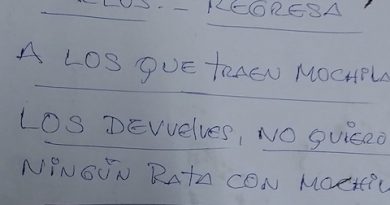 REGRESA
A LOS QUE tRAEN MOCHILA
LOS DEVUELVES, NO QUIERO
NINGÚN RATA CON